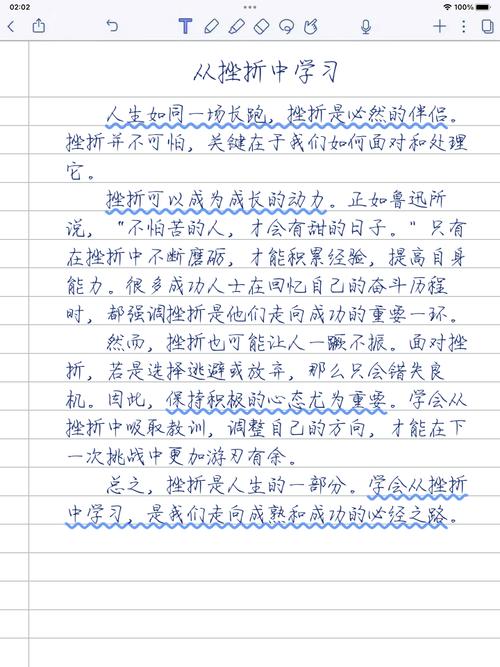 02:02
100%
T
从挫折中学习
人生如同一场长跑，挫折是必然的伴侣。
挫折并不可怕，关键在于我们如何面对和处理
它。
挫折可以成为成长的动力。正如鲁迅所
说，“不怕苦的人，才会有甜的日子。”只有
在挫折中不断磨砺，才能积累经验，提高自身
能力。很多成功人士在回忆自己的奋斗历程
时，都强调挫折是他们走向成功的重要一环。
然而，挫折也可能让人一蹶不振。面对挫
折，若是选择逃避或放弃，那么只会错失良
机。因此，保持积极的心态尤为重要。学会从
挫折中吸取教训，调整自己的方向，才能在下
一次挑战中更加游刃有余。
总之，挫折是人生的一部分。学会从挫折
中学习，是我们走向成熟和成功的必经之路。